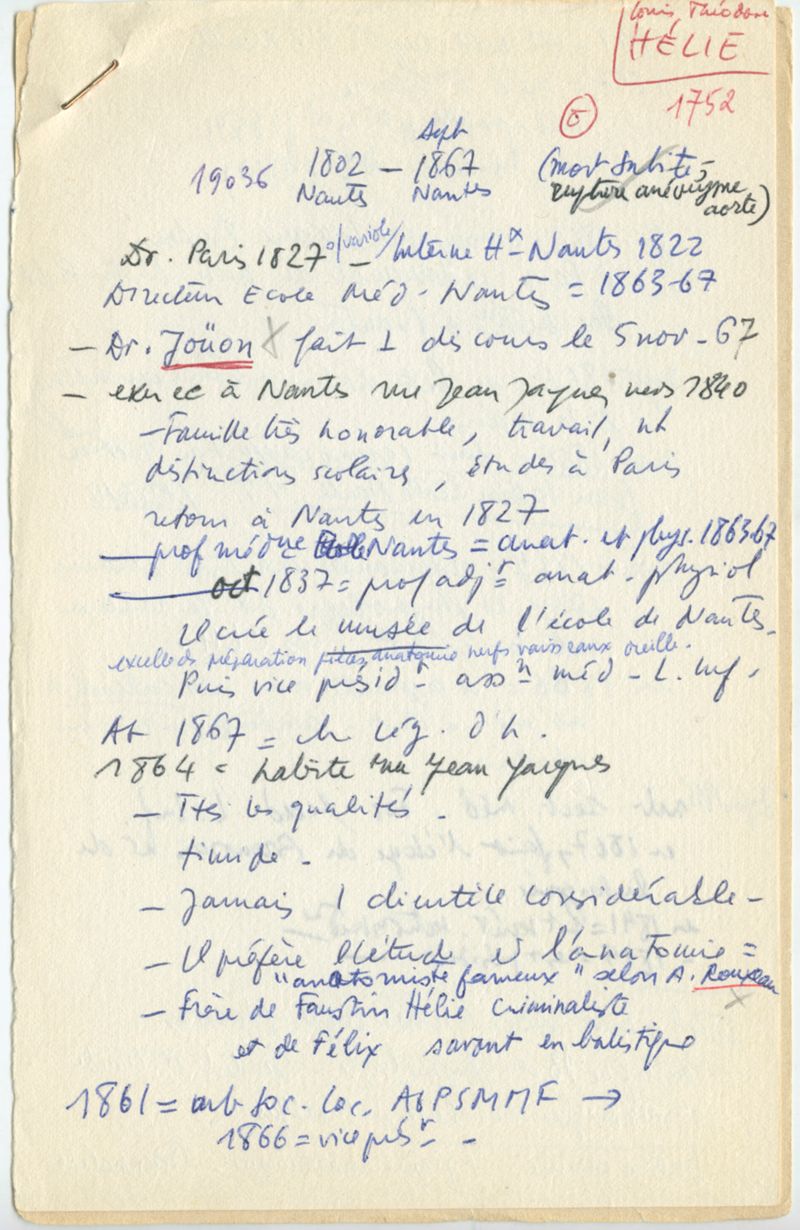 Louis, Théodore
HÉLIE
1752
Sept
19036 1802 – 1867 (mort subite,
Nantes Nantes rupture anévrysme
aorte)
Dr. Paris 1827 s/variole/ – Interne Hx – Nantes 1822
Directeur Ecole Méd - Nantes = 1863-67
– Dr. Joüon X fait 1 discours le 5 nov - 67
– exerce à Nantes rue Jean Jacques vers 1840
– Famille très honorable, travail, nt
distinctions scolaires, études à Paris
retour à Nantes en 1827
prof médne Nantes = anat. et phys. 1863-67
oct 1837 = prof adjt = anat - physiol
Il crée le musée de l'école de Nantes.
excelle ds préparation pièces anatomie nerfs vaisseaux oreille.
Puis vice présidt assn méd - L. Inf.
At 1867 = ch lég. d'h.
1864 = habite rue Jean Jacques
– Ttes les qualités.
timide –
– Jamais 1 clientèle considérable –
– Il préfère l'étude et l'anatomie =
"anatomiste fameux" selon A. Rouxeau
X
– Frère de Faustin Hélie criminaliste
et de Félix savant en balistique
1861 = mb soc. loc. AGPSMMF →
1866 = vice prést – –